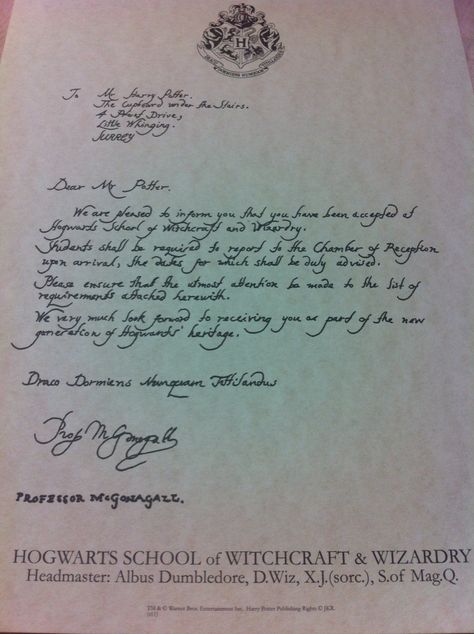 To Mr Harry Potter.
The Cupboard under the Stairs.
4 Privet Drive,
Little Whinging.
SURREY
Dear Mr Potter.
We are pleased to inform you that you have been accepted at
Hogwarts School of Witchcraft and Wizardry.
Students shall be required to report to the Chamber of Reception
upon arrival, the dates for which shall be duly advised.
Please ensure that the utmost attention be made to the list of
requirements attached herewith.
We very much look forward to receiving you as part of the new
generation of Hogwarts' heritage.
Draco Dormiens Nunquam Tittilandus
Prof McGonagall
PROFESSOR McGONAGALL.
HOGWARTS SCHOOL of WITCHCRAFT & WIZARDRY
Headmaster: Albus Dumbledore, D.Wiz, X.J.(sorc.), S.of Mag.Q.
TM & © Warner Bros. Entertainment Inc. Harry Potter Publishing Rights © JKR.